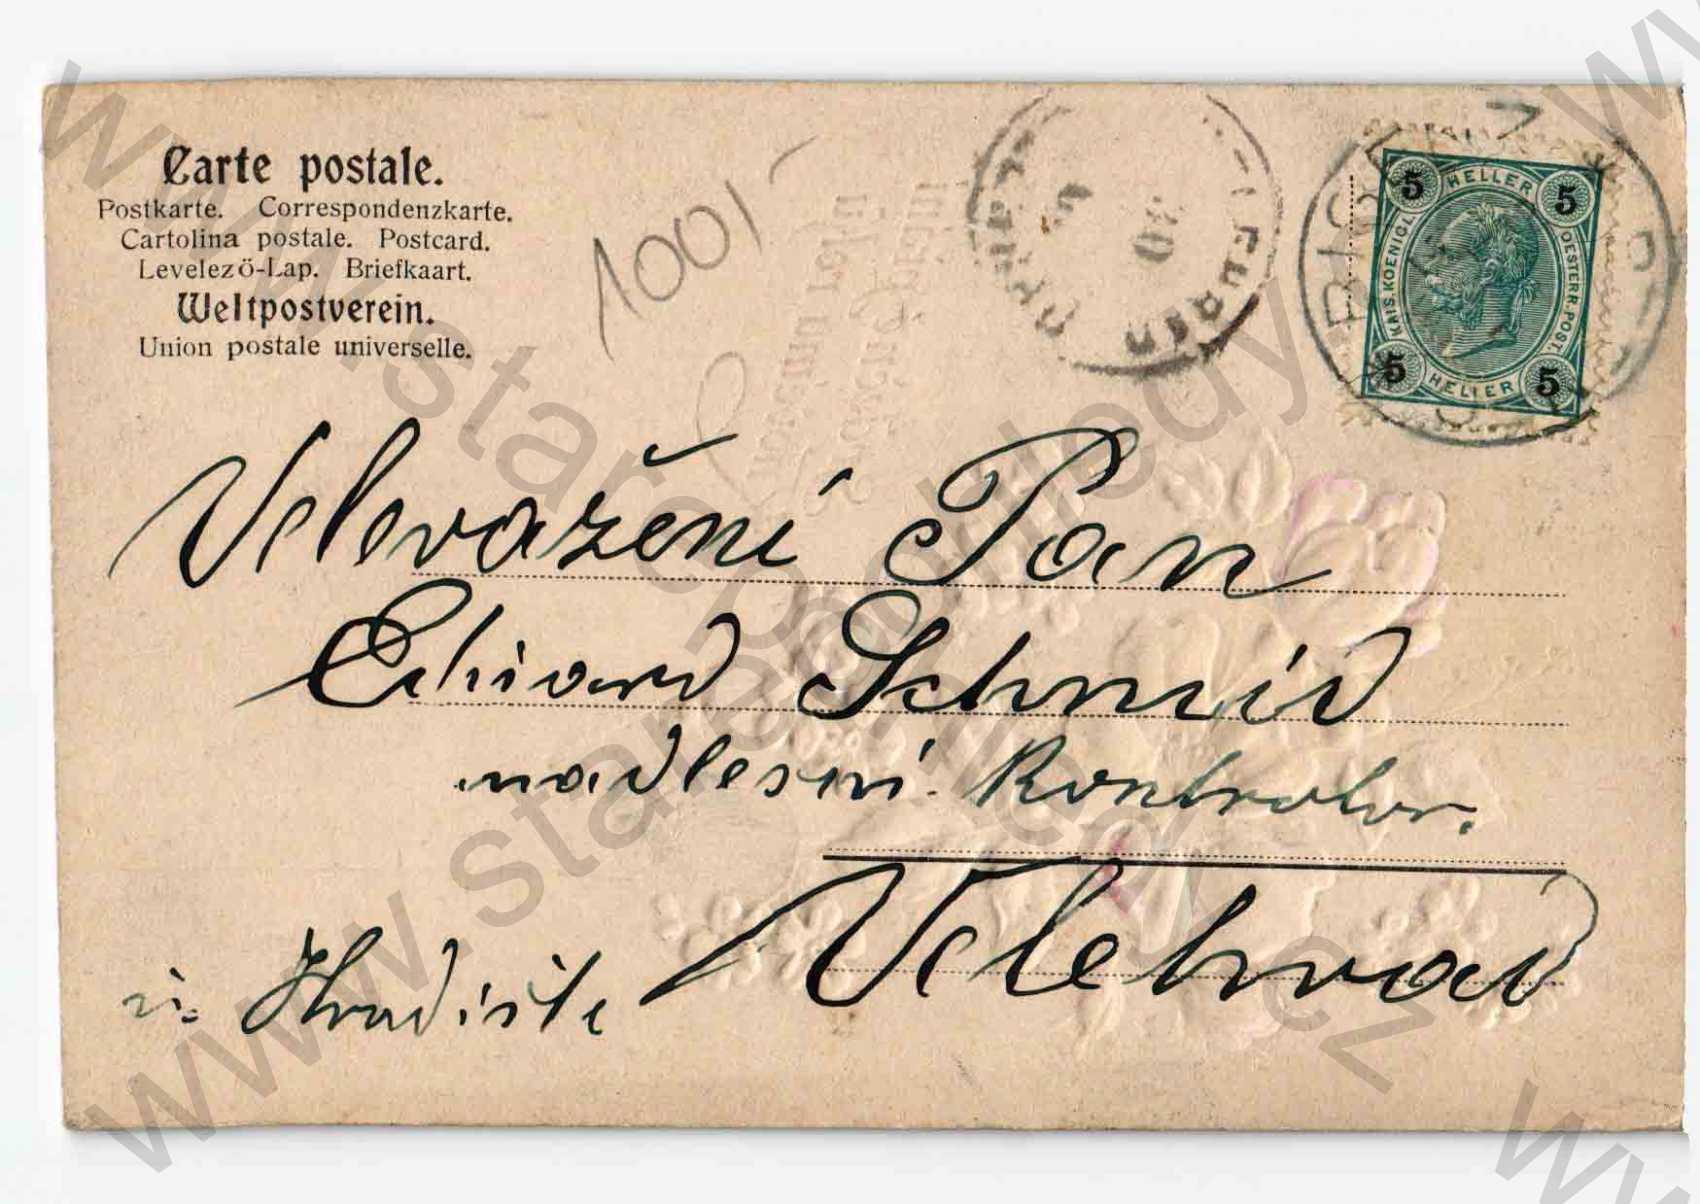 Carte postale.
Postkarte. Correspondenzkarte.
Cartolina postale. Postcard.
Levelező-Lap. Briefkaart.
Weltpostverein.
Union postale universelle.
100/-
5 HELLER 5
KAIS. KOENIGL. OESTERR. POST.
5 HELLER 5
Velevažení Pan
Eduard Schmid
nadlesní. Kontrolor.
Velehrad
u. Hradiště
www.starepohledy.cz
www.starepohledy.cz